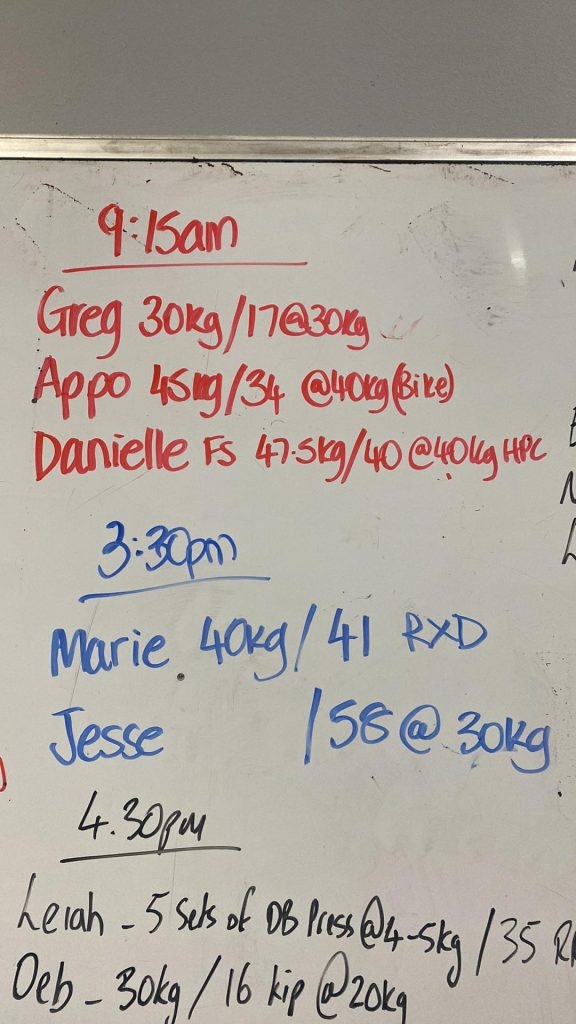 9:15am
Greg 30kg/17@30kg
Appo 45kg/34 @40kg(Bike)
Danielle FS 47.5kg/40@40kg HPC
3:30pm
Marie 40kg/41 RXD
Jesse /58@30kg
4.30pm
Leiah - 5 Sets of DB Press@4-5kg/35
Deb - 30kg/16 kip @20kg